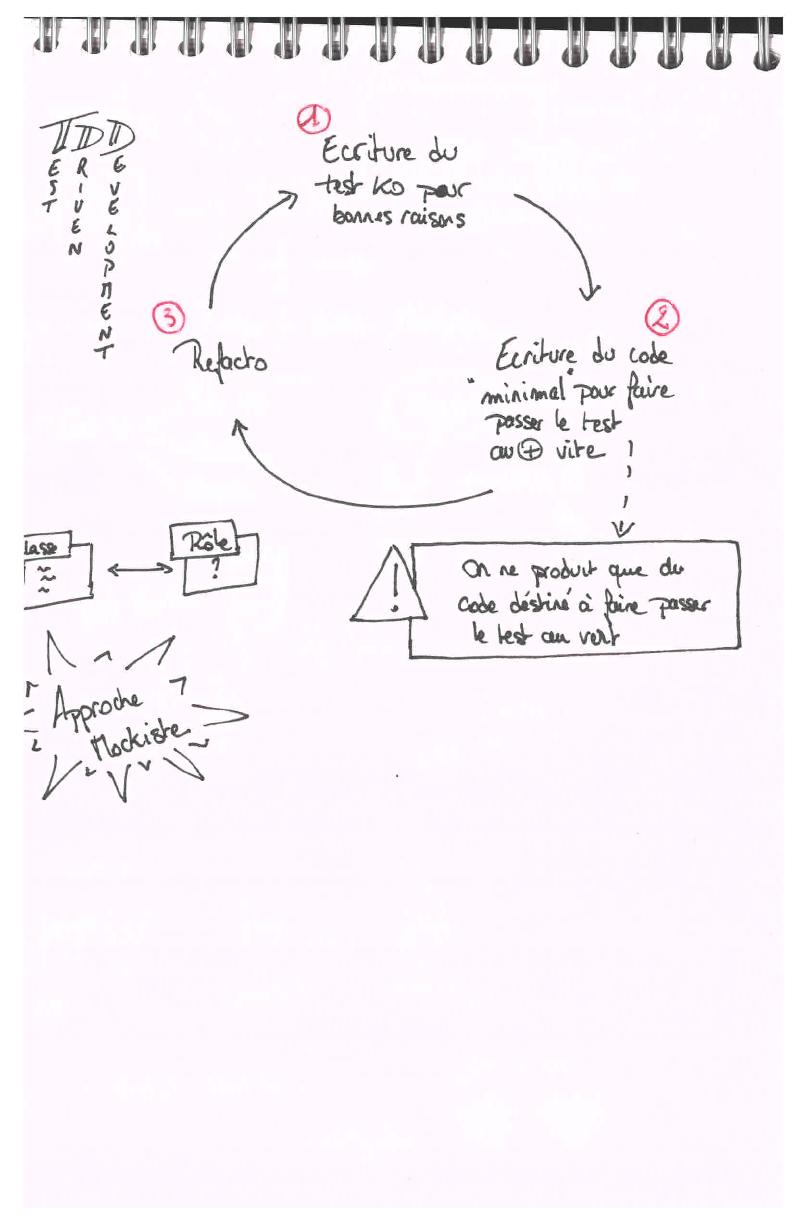 TDD
EST
RIVEN
EVELOPMENT
1
Ecriture du
test KO pour
bonnes raisons
2
Ecriture du code
"minimal" pour faire
passer le test
au + vite
3
Refacto
On ne produit que du
code déstiné à faire passer
le test au vert
!
lasse
Rôle
?
Approche
Mockiste